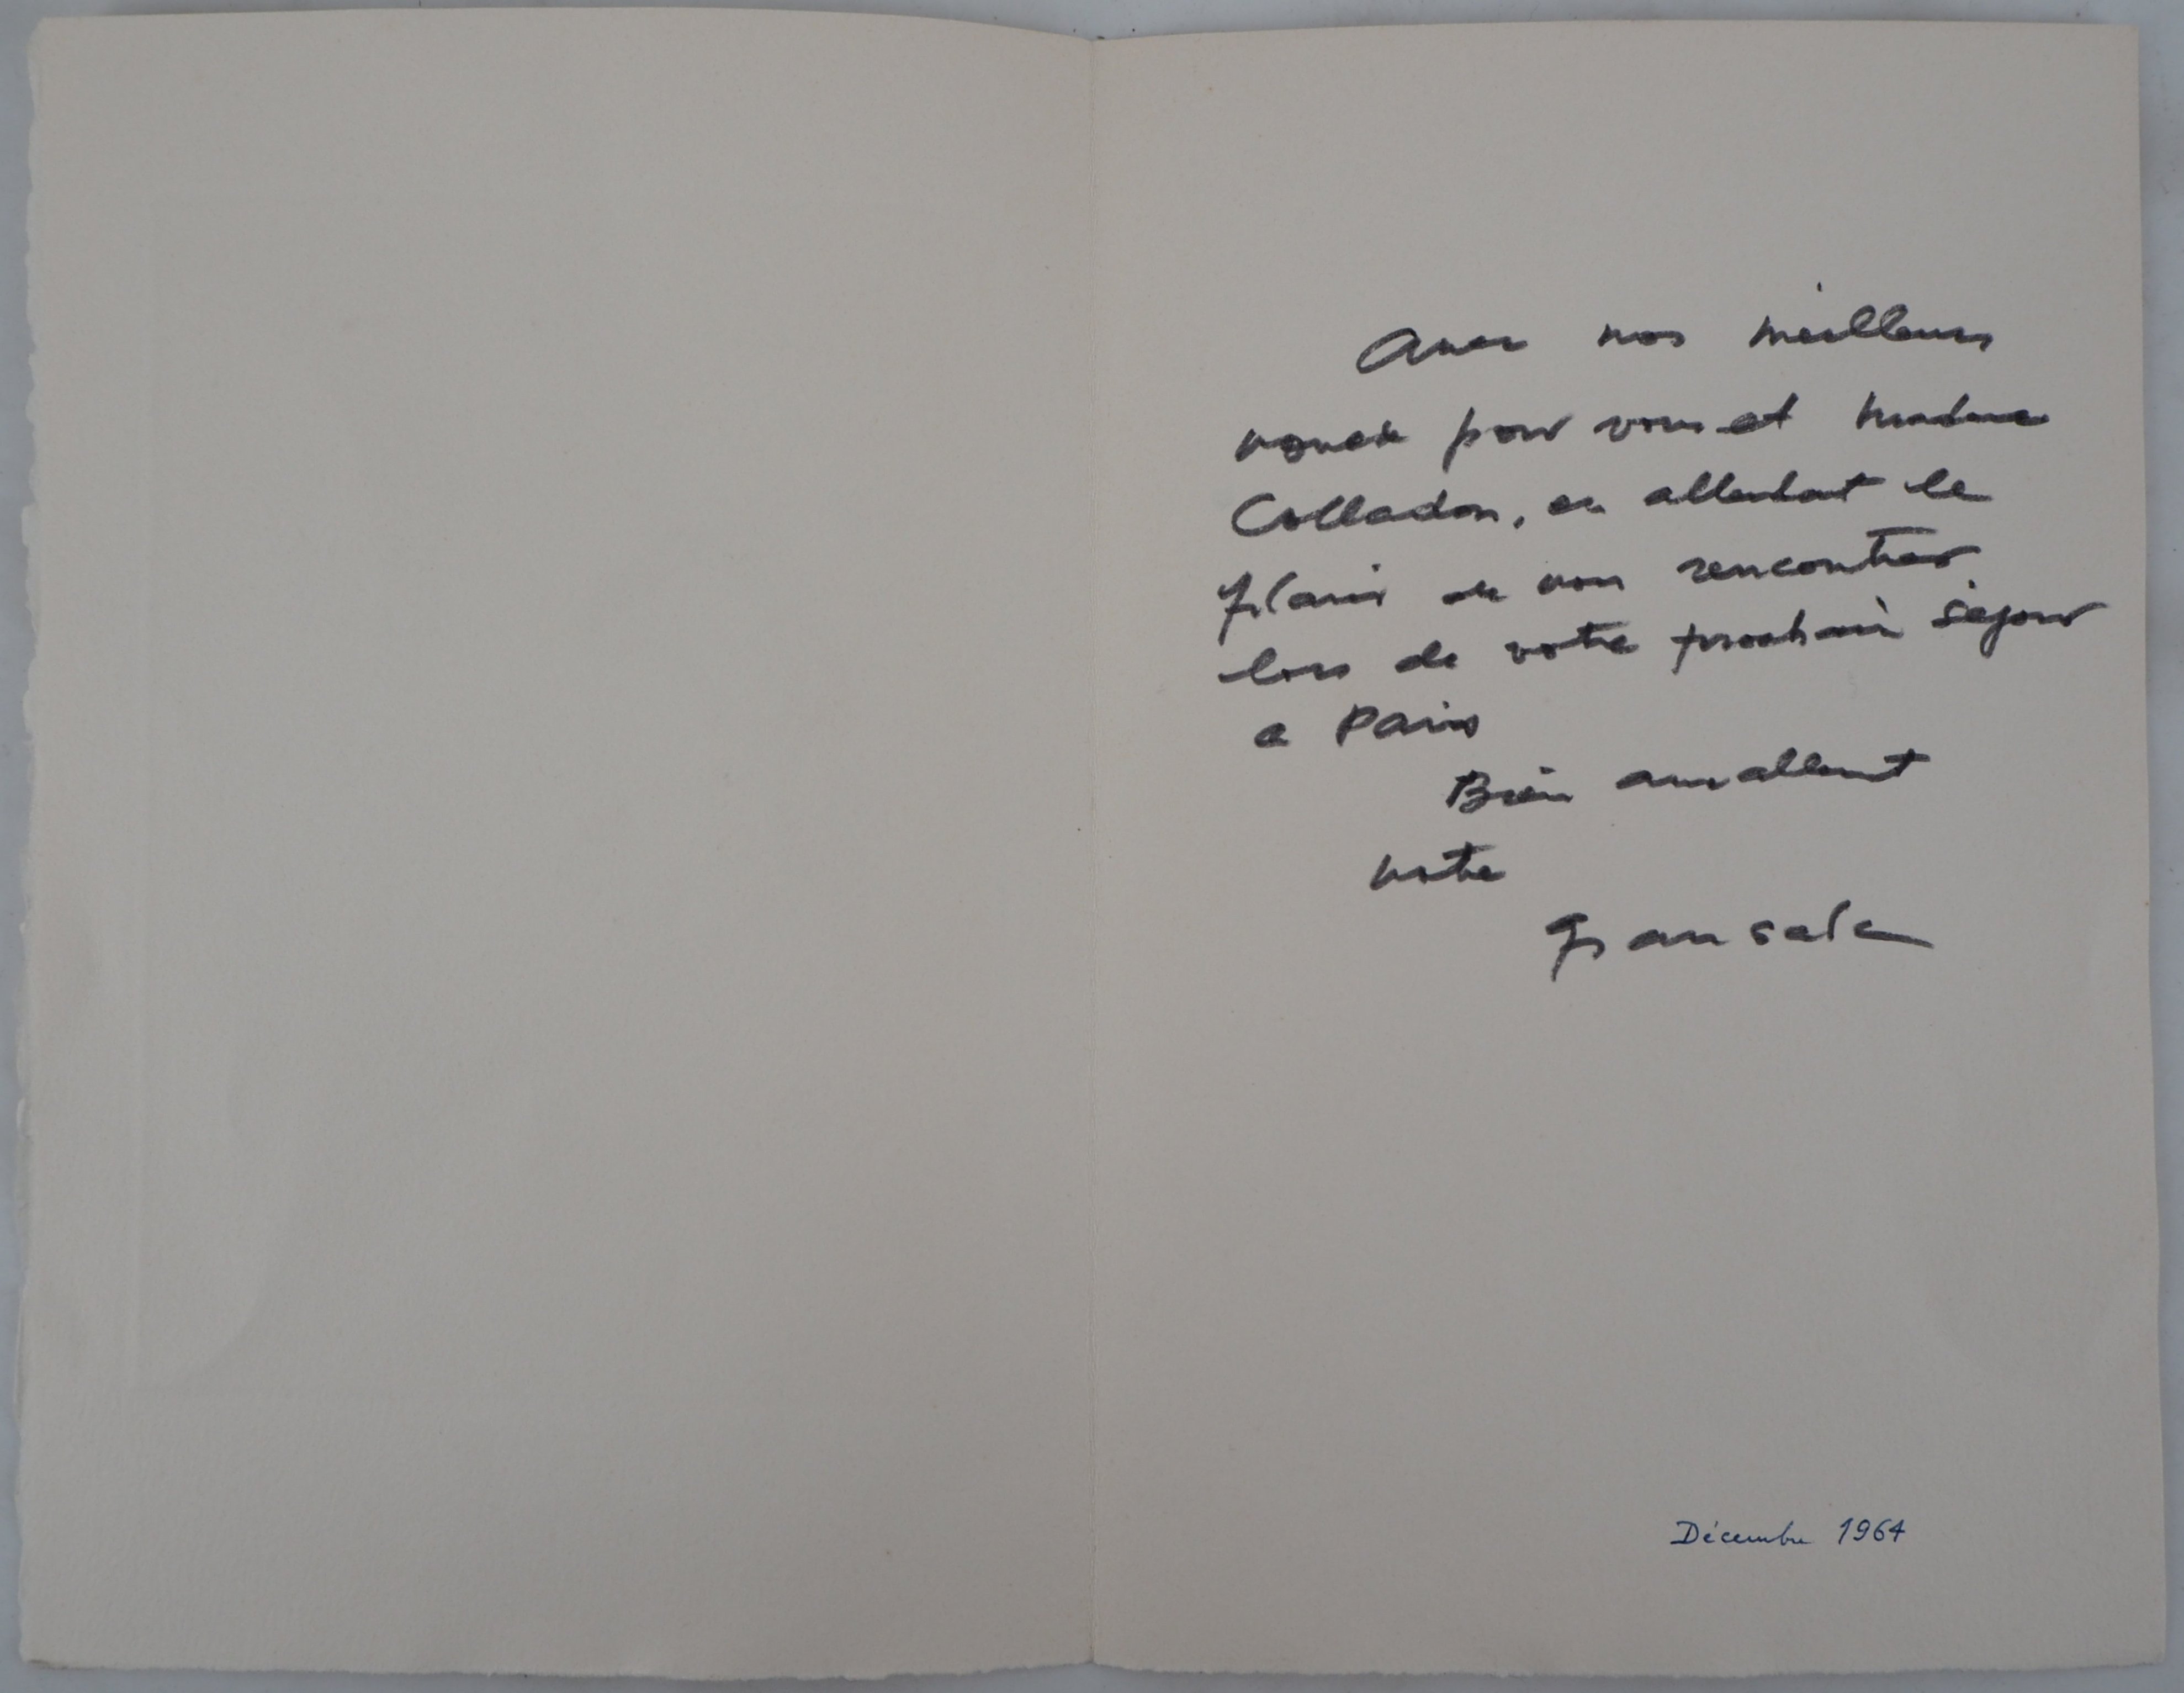 Avec nos meilleurs
voeux pour vous et madame
Colladon, en attendant le
plaisir de vous rencontrer
lors de votre prochain séjour
a Paris
Bien amicalement
votre
Décembre 1964